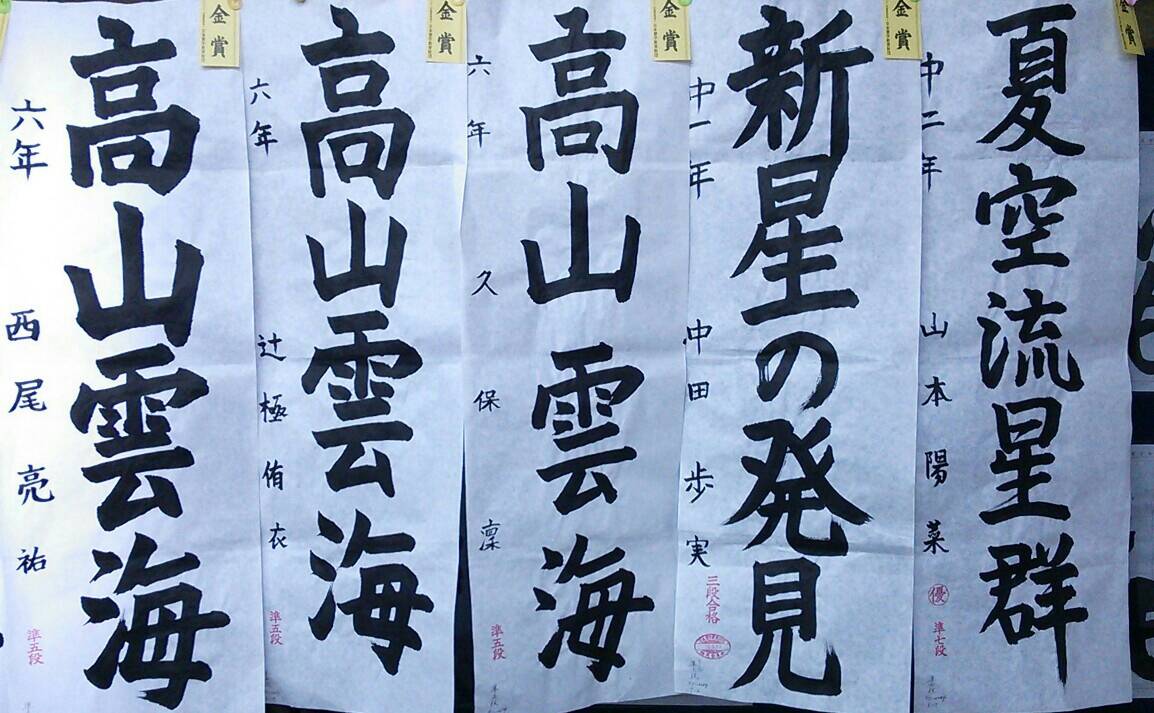 金賞
夏空流星群
中二年 山本陽菜
優
準七段
金賞
新星の発見
中一年 中田歩実
三段合格
金賞
高山雲海
六年 久保凛
準五段
金賞
高山雲海
六年 辻極侑衣
準五段
金賞
高山雲海
六年 西尾亮祐
準五段